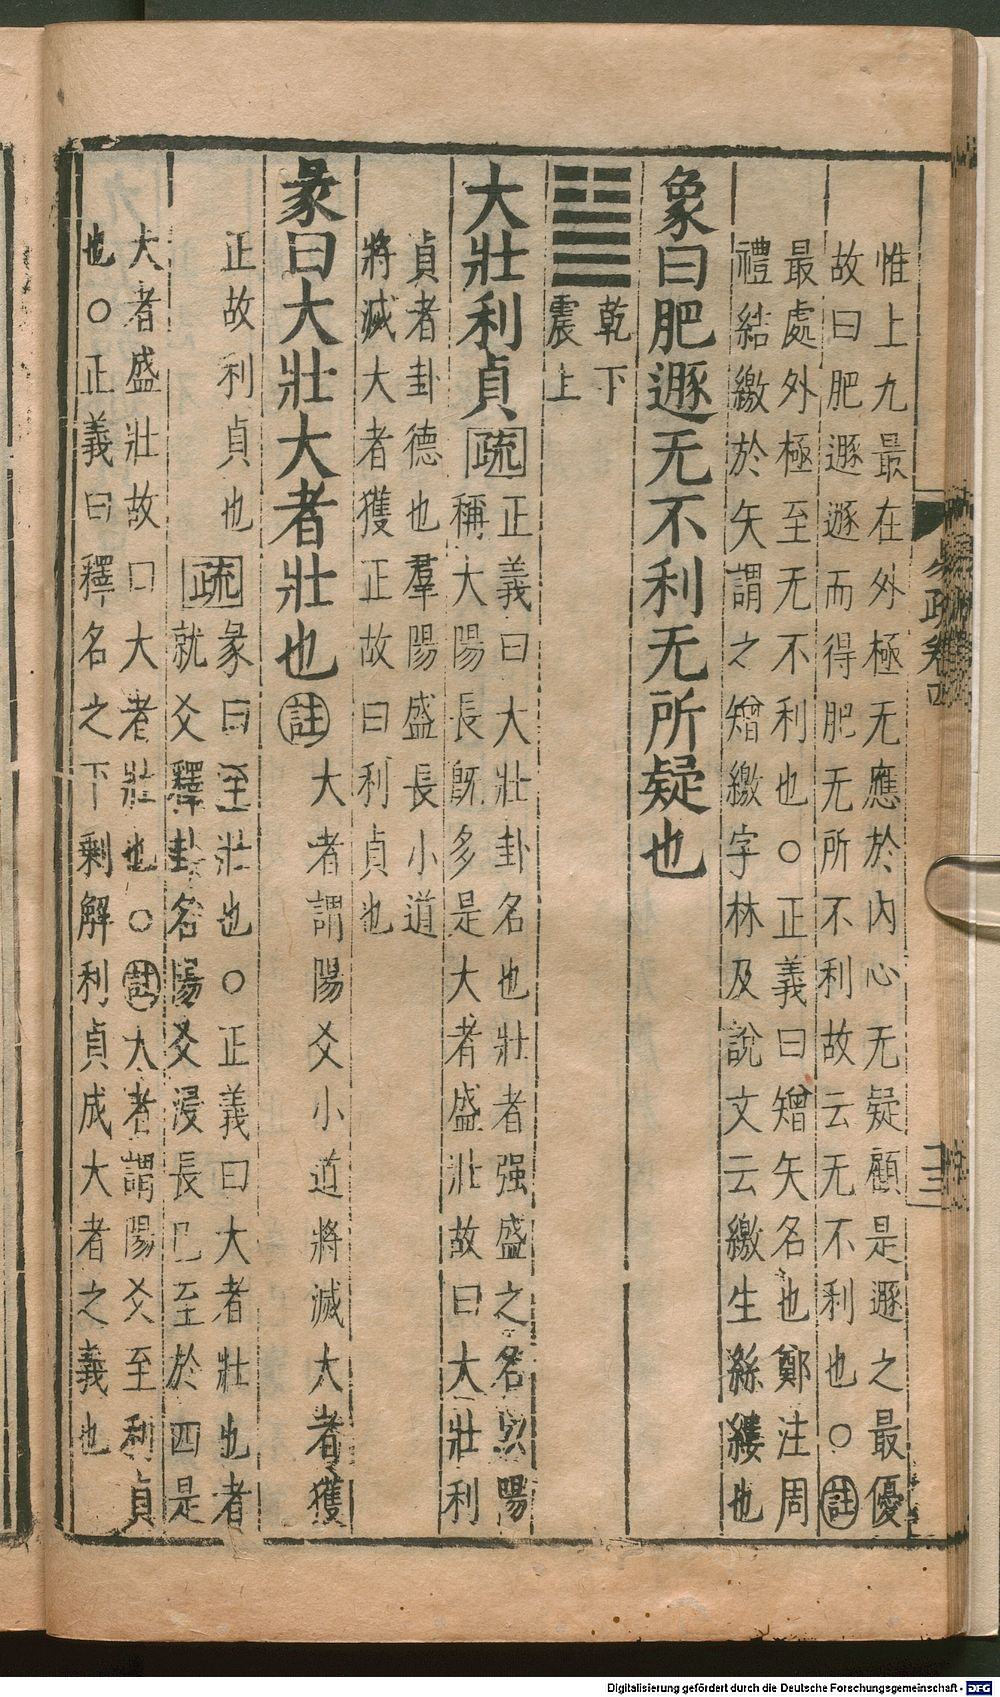 惟上九最在外極无應於內心无疑顧是遯之最優
故曰肥遯遯而得肥无所不利故云无不利也○註
最處外極至无不利也○正義曰矰矢名也鄭注周
禮結繳於矢謂之矰繳字林及說文云繳生絲縷也
象曰肥遯无不利无所疑也
乾下
震上
大壯利貞疏正義曰大壯卦名也壯者强盛之名以陽
稱大陽長旣多是大者盛壯故曰大壯利
貞者卦德也羣陽盛長小道
將滅大者獲正故曰利貞也
彖曰大壯大者壯也註大者謂陽爻小道將滅大者獲
正故利貞也
疏彖曰至壯也○正義曰大者壯也者
就爻釋卦名陽爻浸長已至於四是
大者盛壯故曰大者壯也○註大者謂陽爻至利貞
也○正義曰釋名之下剩解利貞成大者之義也
易疏卷四
Digitalisierung gefördert durch die Deutsche Forschungsgemeinschaft - DFG